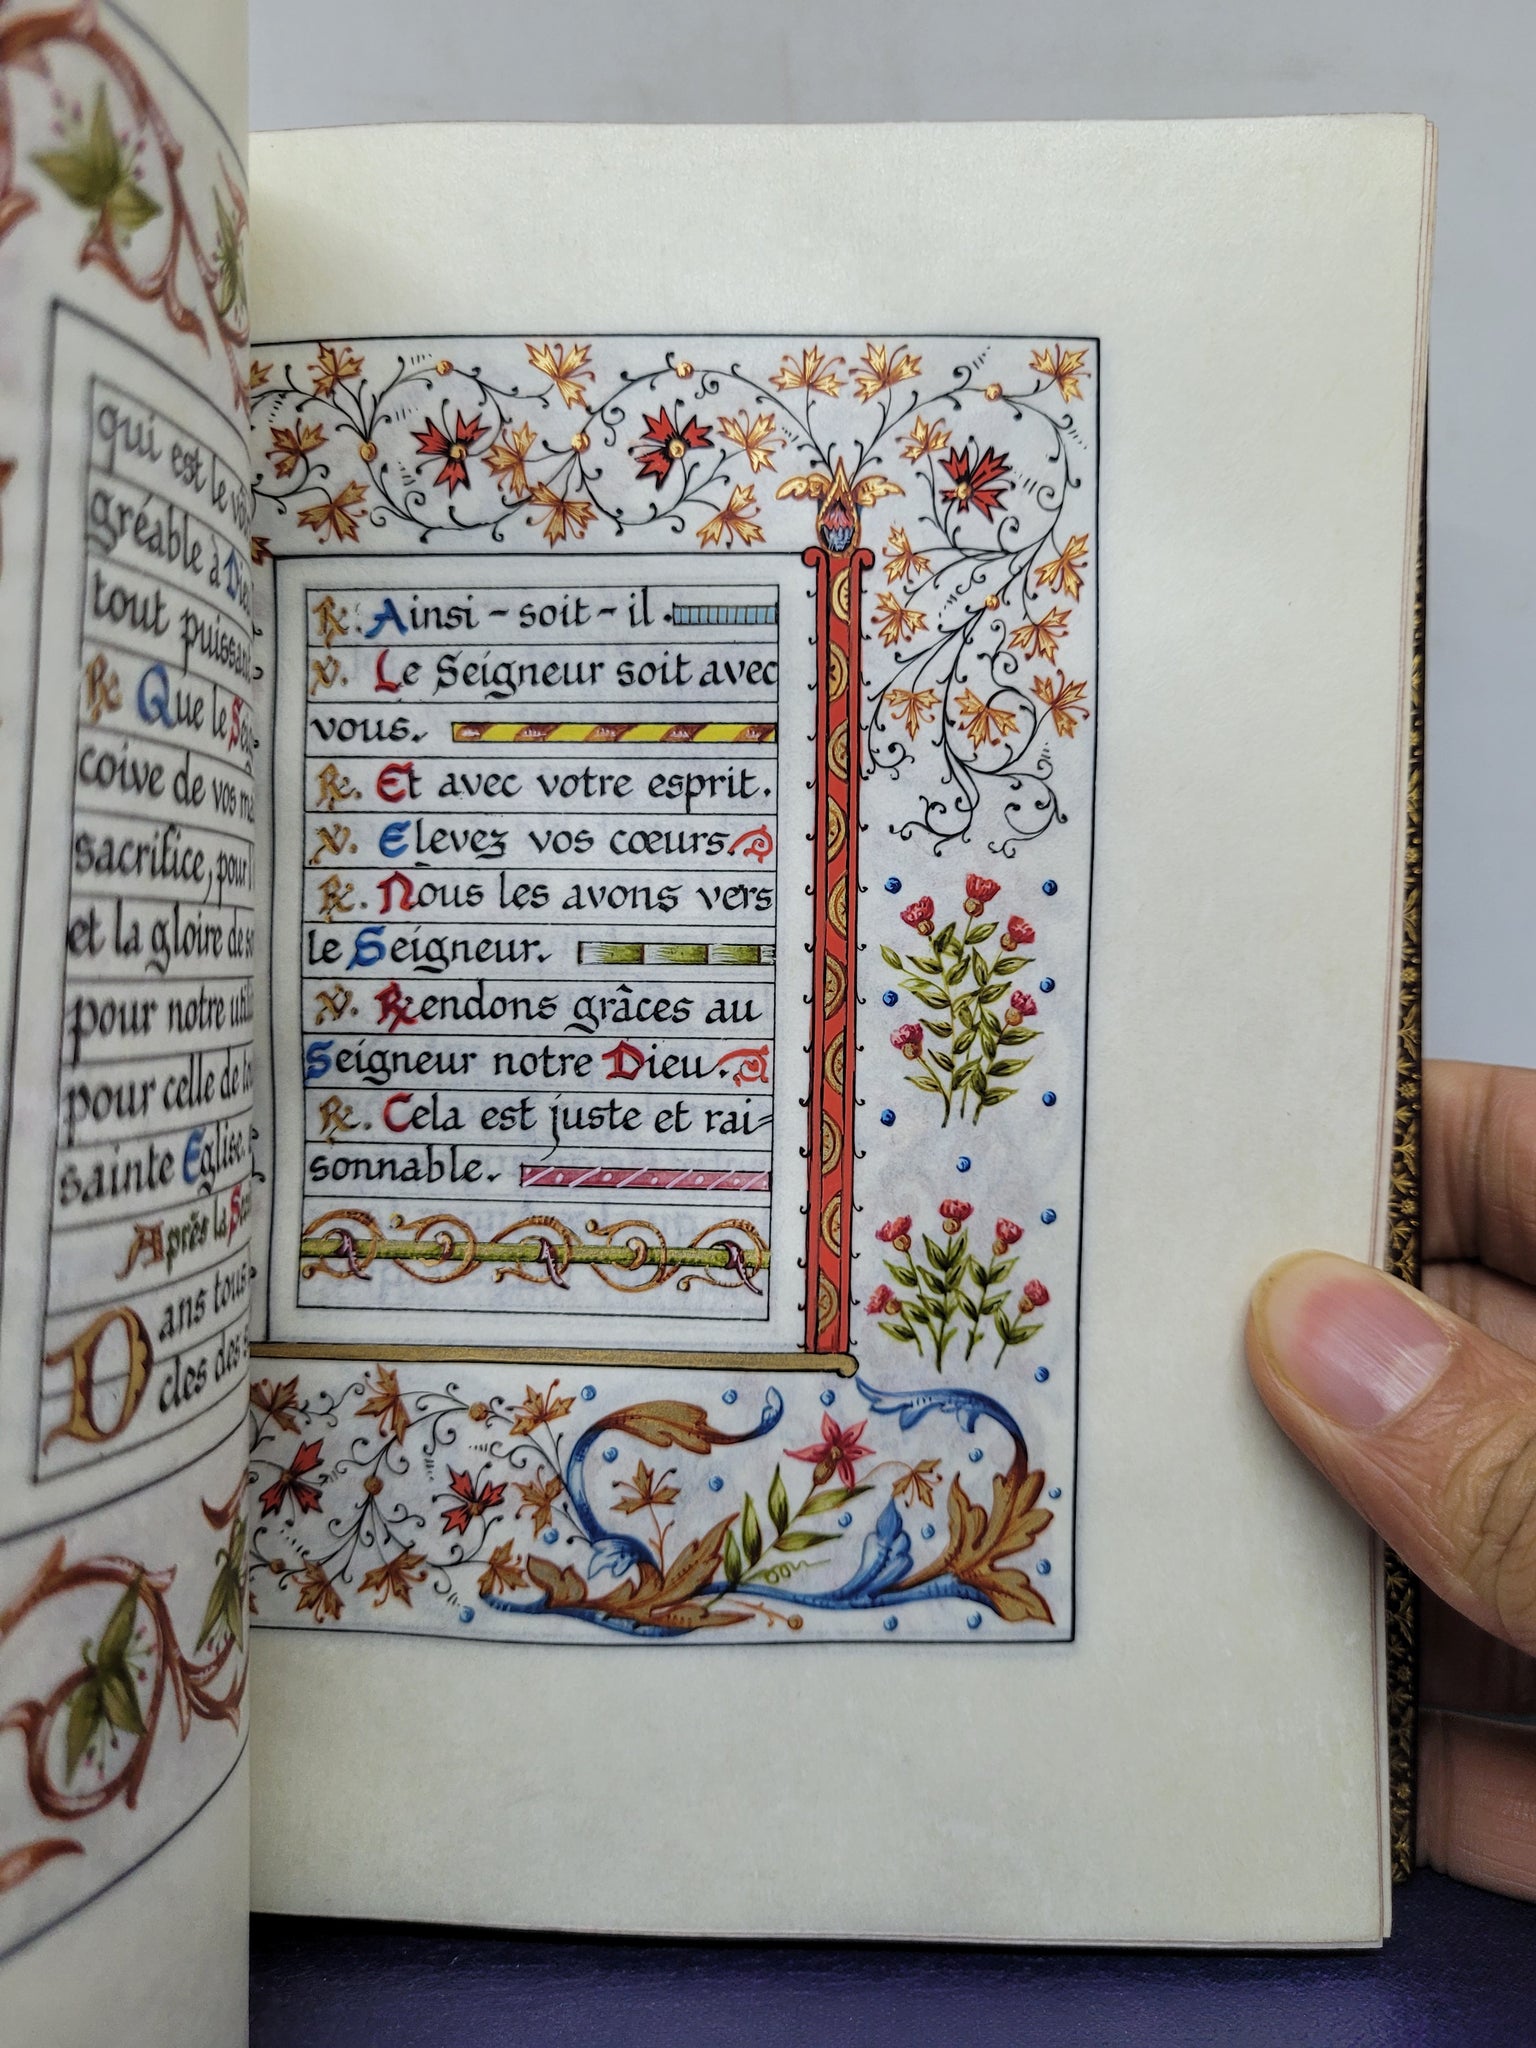 qui est le
gréable à
tout
℟ Que le
coive de vos
sacrifice, pour
et la gloire de
pour notre
pour celle de
sainte Eglise.
Après la
Dans tous
cles des
℟. Ainsi-soit-il.
℣. Le Seigneur soit avec
vous.
℟. Et avec votre esprit.
℣. Elevez vos cœurs.
℟. Nous les avons vers
le Seigneur.
℣. Rendons grâces au
Seigneur notre Dieu.
℟. Cela est juste et rai-
sonnable.